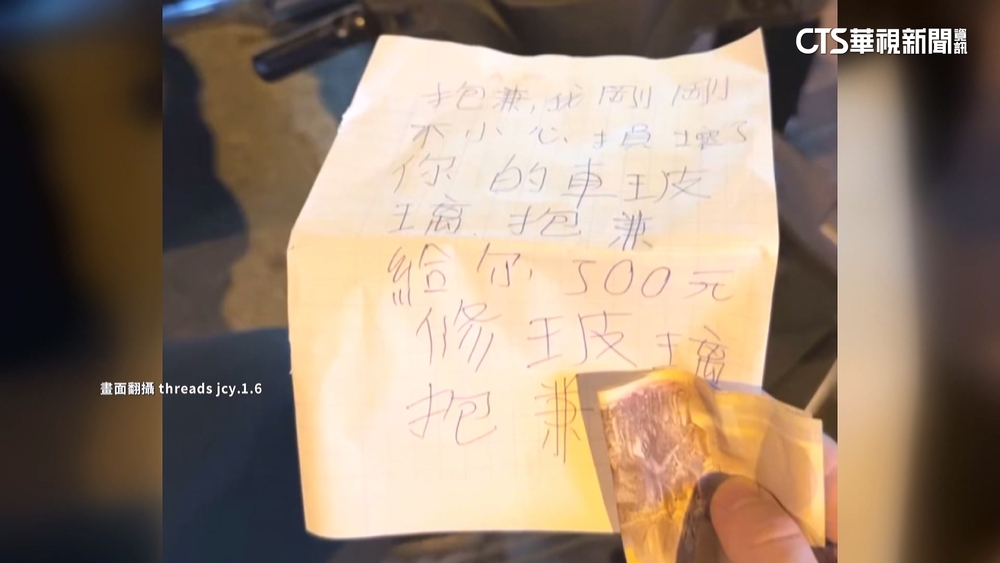 CTS華視新聞資訊
抱兼,我剛剛
不小心損壞了
你的車玻
璃.抱兼
給你500元
修玻璃
抱兼
畫面翻攝 threads jcy.1.6